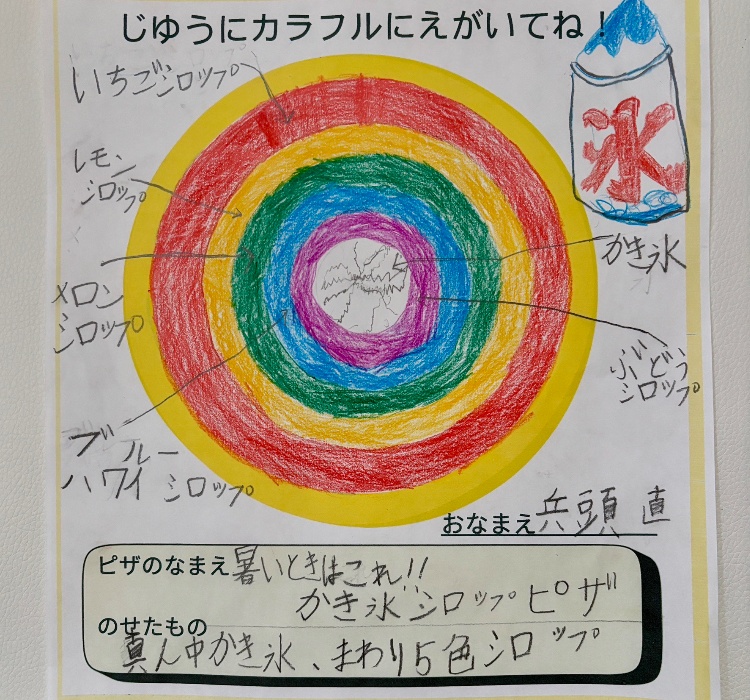 じゆうにカラフルにえがいてね！
いちごシロップ
氷
レモン
シロップ
かき氷
メロン
シロップ
ぶどう
シロップ
ブルー
ハワイ シロップ
おなまえ 兵頭 直
ピザのなまえ 暑いときはこれ!!
かき氷シロップピザ
のせたもの
真ん中かき氷、まわり5色シロップ